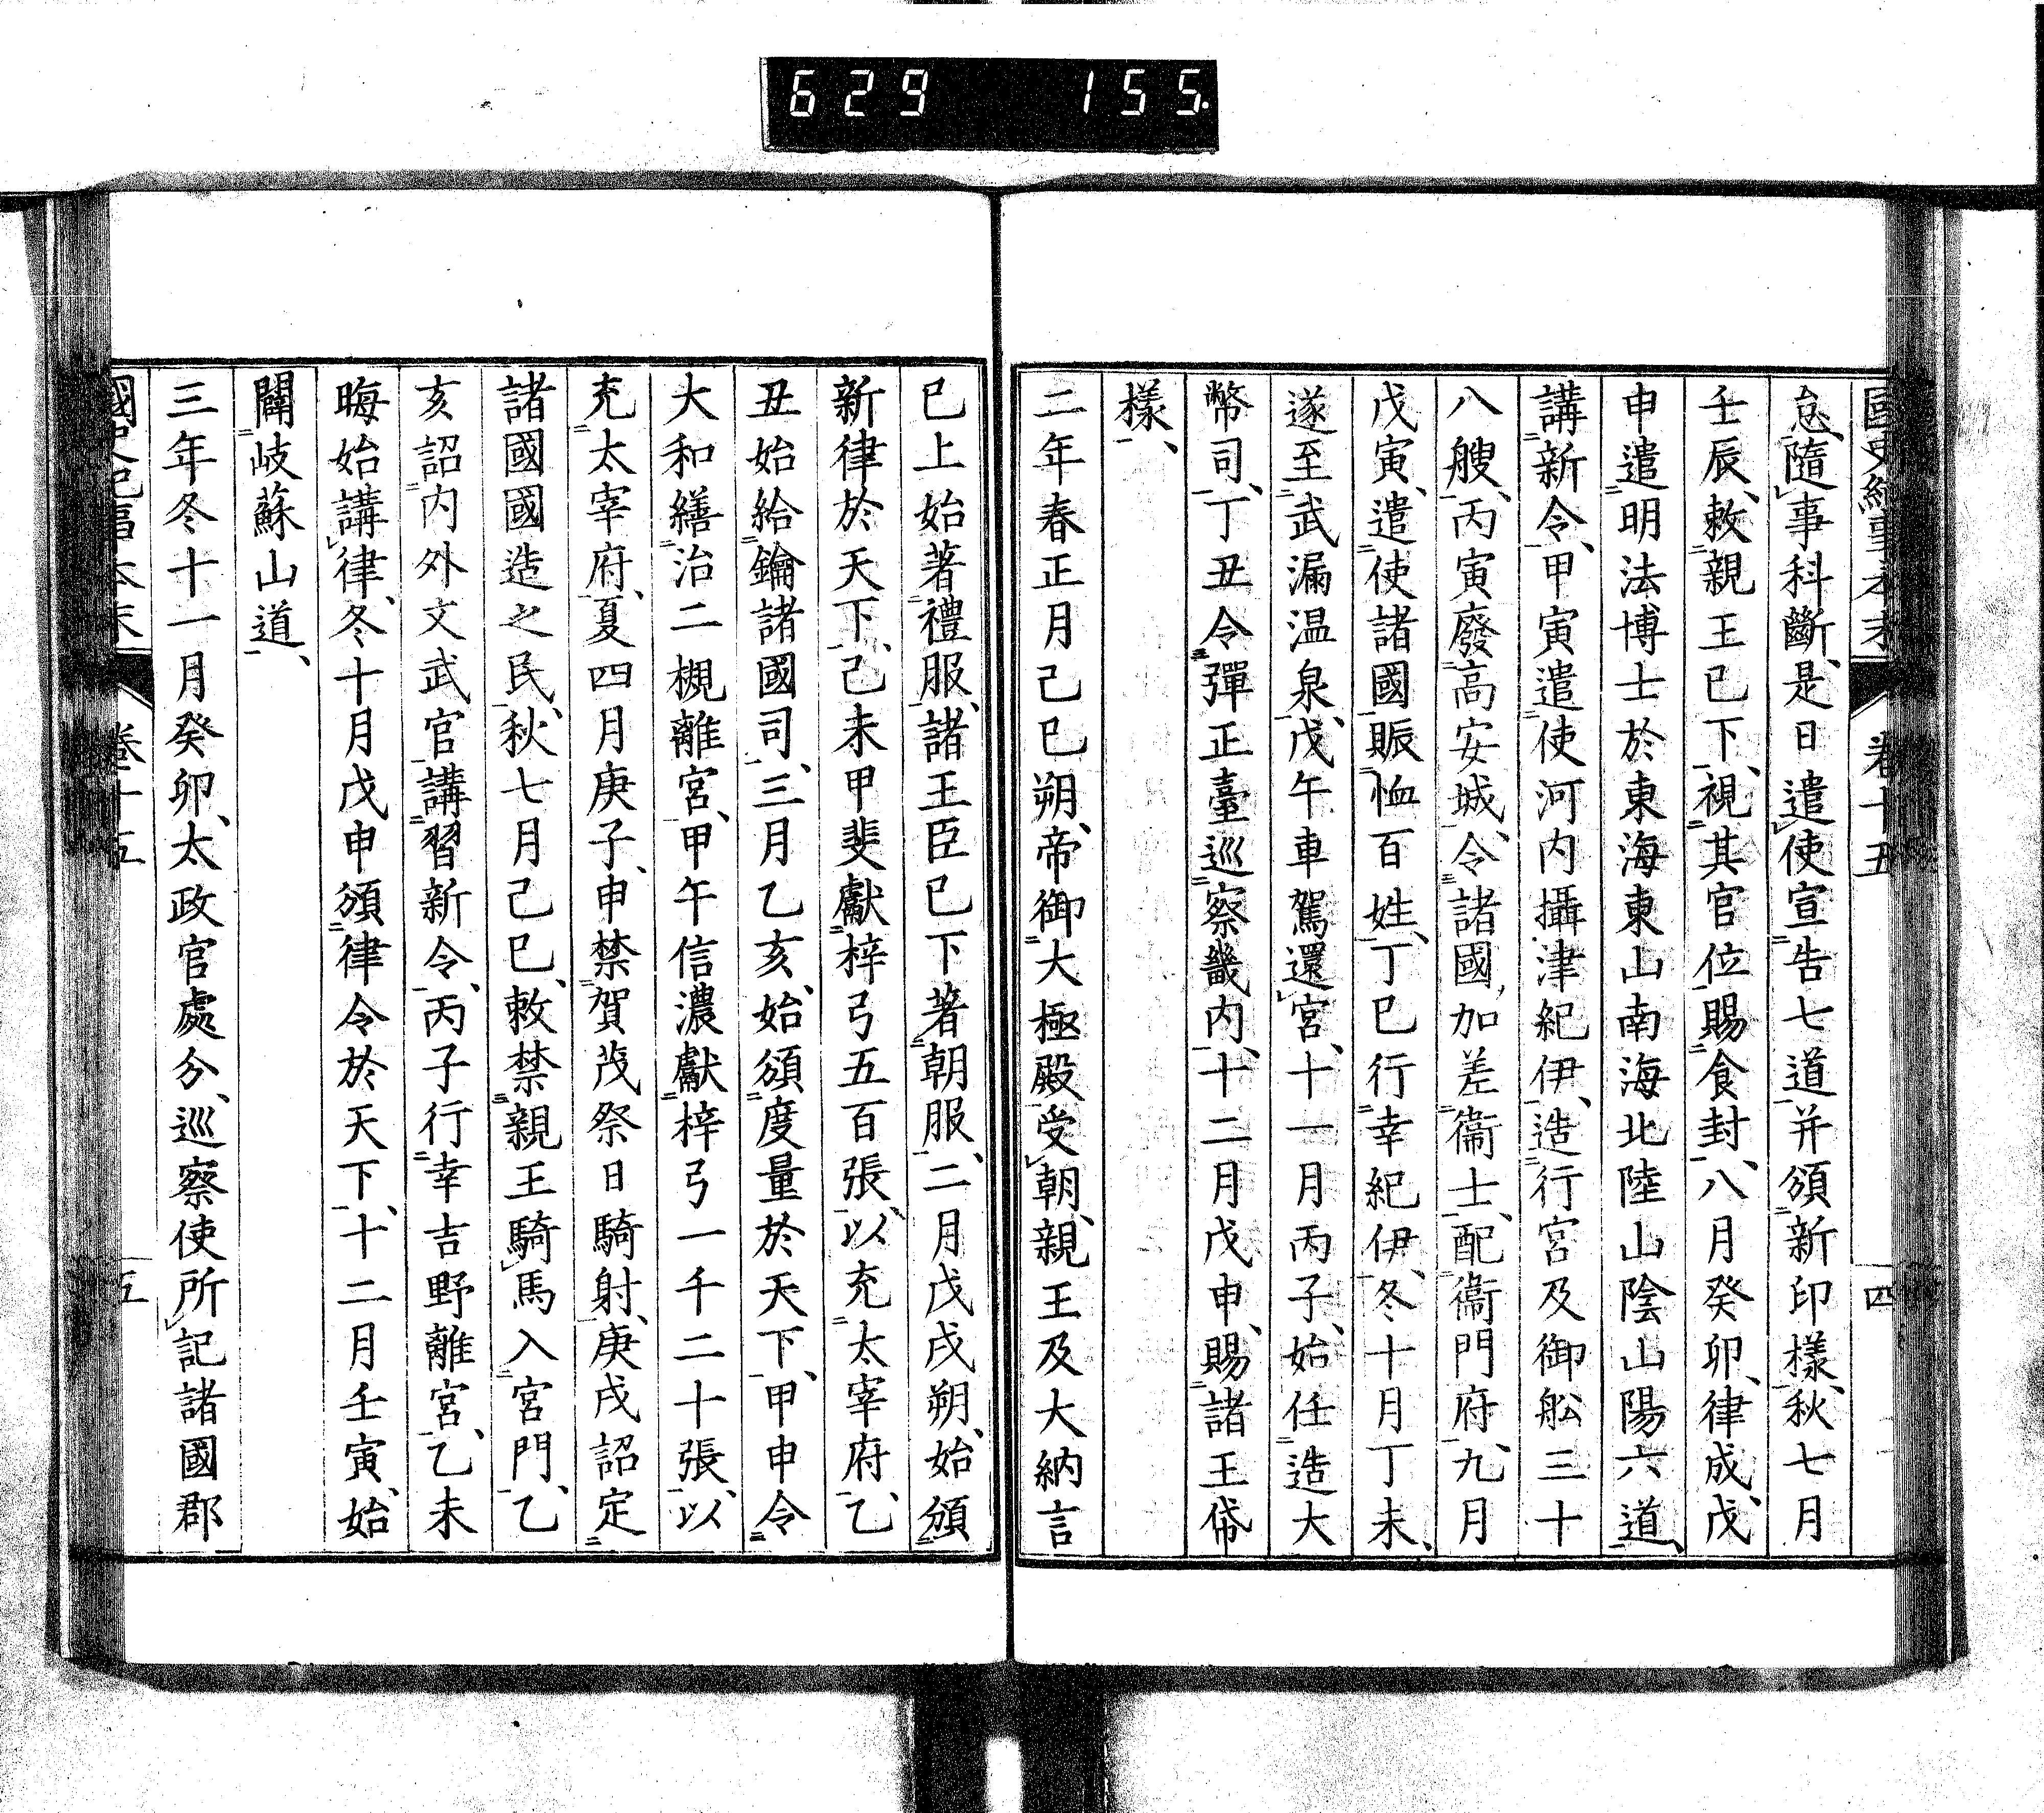 629 155.
國史紀事本末 卷十五 四
怠、隨事科斷、是日遣使宣告七道、并頒新印樣、秋七月
壬辰、敕親王已下、視其官位賜食封、八月癸卯、律成、戊
申遣明法博士於東海東山南海北陸山陰山陽六道、
講新令、甲寅遣使河內攝津紀伊、造行宮及御舩三十
八艘、丙寅廢高安城、令諸國加差衞士、配衞門府、九月
戊寅、遣使諸國賑恤百姓、丁巳行幸紀伊、冬十月丁未、
遂至武漏温泉、戊午車駕還宮、十一月丙子、始任造大
幣司、丁丑令彈正臺巡察畿内、十二月戊申、賜諸王帋
樣、
二年春正月己巳朔、帝御大極殿受朝、親王及大納言
已上始著禮服、諸王臣已下著朝服、二月戊戌朔、始頒
新律於天下、己未甲斐獻梓弓五百張、以充太宰府、乙
丑始給鑰諸國司、三月乙亥、始頒度量於天下、甲申令
大和繕治二槻離宮、甲午信濃獻梓弓一千二十張、以
充太宰府、夏四月庚子、申禁賀茂祭日騎射、庚戌詔定
諸國國造之民、秋七月己巳、敕禁親王騎馬入宮門、乙
亥詔内外文武官講習新令、丙子行幸吉野離宮、乙未
晦始講律、冬十月戊申頒律令於天下、十二月壬寅、始
闢岐蘇山道、
三年冬十一月癸卯、太政官處分、巡察使所記諸國郡
國史紀事本末 卷十五 五